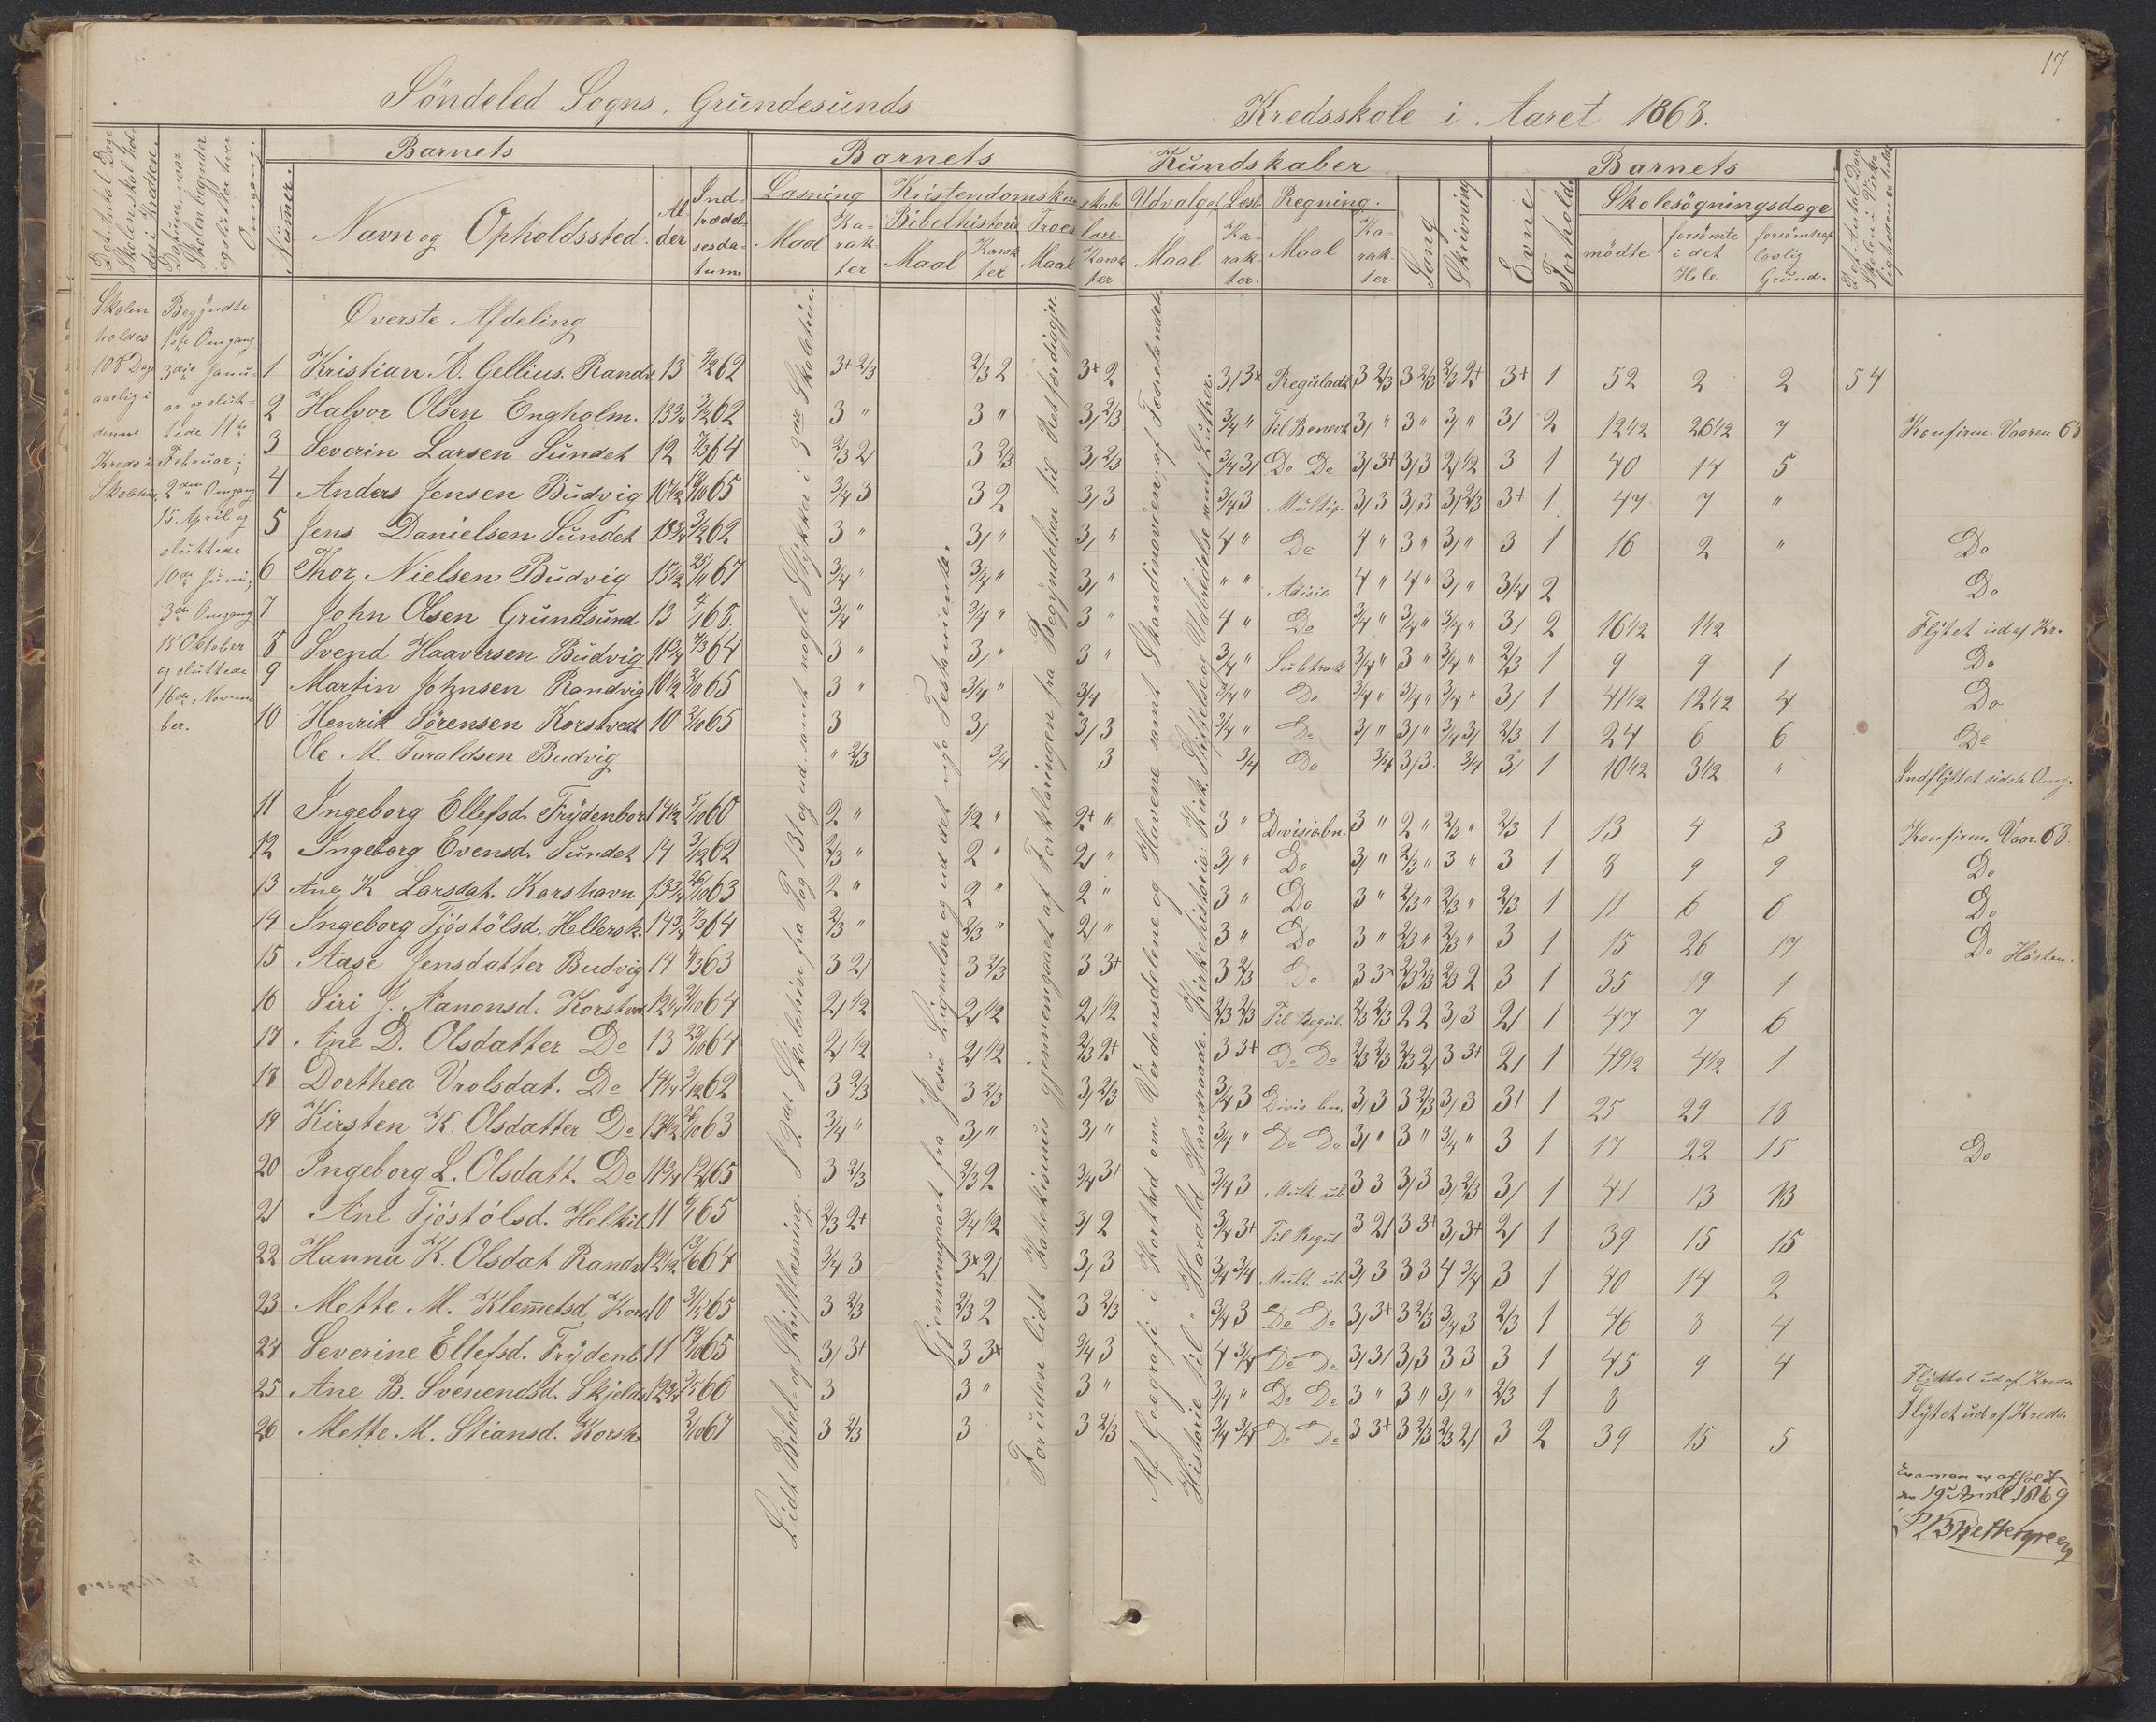 17
Söndeled Sogns. Grundesunds
Kredsskole i Aaret 1868.
Barnets
Barnets
Kundskaber.
Barnets
Det Antal Dage Skolen skal holdes i Kredsen.
Datum, naar Skolen begynder og slutter hver Omgang.
Numer.
Navn og Opholdssted.
Alder
Indtrædelsesdatum
Læsning
Maal
Karakter
Kristendomskundskab
Bibelhistorie
Maal
Karakter
Troeslære
Maal
Karakter
Udvalg af Læseb.
Maal
Karakter.
Regning.
Maal
Karakter.
Sang
Skrivning
Evne
Forhold.
Skolesögningsdage
mödte
forsömte i det Hele
forsömte af lovlig Grund.
Det Antal Dage Skolen i Virkeligheden er holdt
Skolen
holdes
108 Dage
aarlig i
denne
Kreds i
Skoletiden
Begyndte
1ste Omgang
3die Janu-
ar og slut-
tede 11te
Februar;
2den Omgang
15. April og
sluttede
10de Juni;
3die Omgang
15 Oktober
og sluttede
16de Novem
ber.
Överste Afdeling
1 Kristian A. Gellius. Randv. 13 62 3+ 2/3 2/3 2 3+ 2 Reguladt. 3 2/3 3 2/3 3+ 1 52 2 2 54
2 Halvor Olsen Engholm. 13 3/4 62 3 " 3 " 3/ 2/3 3/4 " 3/ " 3 " 3/ " 3/ 2 12 1/2 26 1/2 7 Konfirm. Vaaren 68
3 Severin Larsen Sundet 12 7/3 64 2/3 2/ 3 2/3 3/ 2/3 3/4 3/ Do Do 3/ 3+ 3/3 2/ 1/2 3 1 40 14 5
4 Anders Jensen Budvig 10 1/2 65 3/4 3 3 2 3/ 3 3/4 3 Multip. 3/ 3 3/3 3/ 2/3 3+ 1 47 7 "
5 Jens Danielsen Sundet 13 3/4 3/12 62 3 " 3/ " 3/ " 4 " Do 4 " 3 " 3/ " 3 1 16 2 " Do
6 Thor Nielsen Budvig 15 1/2 25/11 67 3/4 " 3/4 " 3/ " " " 4 " 4 " 3/ " 3/4 2 Do
7 John Olsen Grundsund 13 4/1 68. 3/4 " 3/4 " 3 " 4 " Do 3/4 " 3/4 " 3/4 " 3/ 2 16 1/2 1 1/2 Flÿtet ud af Kr.
8 Svend Haaversen Budvig 11 3/4 7/3 64 3 " 3/ " 3 " 3/4 " Subtrak 3/4 " 3 " 3/4 " 2/3 1 9 9 1 Do
9 Martin Johnsen Randvig 10 1/2 2/10 65 3 " 3/4 " 3/4 3/4 " Do 3/4 " 3/4 " 3/4 " 3/ 1 41 1/2 12 1/2 4 Do
10 Henrik Sörensen Korstvedt 10 2/10 65 3 3/ 3/ 3 3/4 " Do 3/ " 3/ " 3/4 3/ 2/3 1 24 6 6 Do
Ole M. Taraldsen Budvig " 2/3 3/4 3 3/4 Do 3/4 3/3. 3/4 3/ 1 10 1/2 3 1/2 " Indflÿttet sidste Omg.
11 Ingeborg Ellefsd. Frÿdenbor 14 1/2 5/10 60 2 " 1/2 " 2+ " 3 " Divisionbn. 3 " 2 " 2/3 " 2/3 1 13 4 3 Konfirm. Vaar. 68.
12 Ingeborg Evensd. Sundet 14 3/12 62 2/3 " 2 " 2/ " 3/ " Do 3/ " 2/3 " 3 " 3 1 8 9 9 Do
13 Ane K Larsdat. Korshavn 13 3/4 26/10 63 2 " 2 " 2 " 3 " Do 3 " 2/3 " 2/3 " 2/3 1 11 6 6 Do
14 Ingeborg Tjöstölsd. Hellersk. 14 3/4 7/3 64 2/3 " 2/3 " 2/ " 3 " Do 3 " 2/3 " 2/3 " 3 1 15 26 17 Do Hösten.
15 Aase Jensdatter Budvig 14 63 3 2/ 3 2/3 3 3+ 3 2/3 Do 3 3+ 2/3 2/3 2/3 2 3 1 35 19 1
16 Siri J. Aanonsd. Korstvd. 12 3/4 2/10 64 2/ 1/2 2/ 1/2 2/ 1/2 2/3 2/3 Til Regul. 2/3 2/3 2 2 3/ 3 2/ 1 47 7 6
17 Ane D. Olsdatter Do 13 64 2/ 1/2 2/ 1/2 2/3 2+ 3 3+ Do Do 2/3 2/3 2/3 2/ 3 3+ 2/ 1 49 1/2 4 1/2 1
18 Dorthea Vrolsdat. Do 14 1/4 3/12 62 3 2/3 3 2/3 3/ 2/3 3/4 3 Divis bn. 3/ 3 3 2/3 3/ 3 3+ 1 25 29 18
19 Kirsten K. Olsdatter Do 13 1/2 26/10 63 3/4 " 3/ " 3/ " 3/4 " Do Do 3/ " 3 " 3/4 " 3 1 17 22 15 Do
20 Ingeborg L. Olsdatt. Do 11 3/4 65 3 2/3 2/3 2 3/4 3+ 3/4 3 Mult. ub 3 3 3/3 3/ 2/3 3/ 1 41 13 13
21 Ane Tjöstölsd. Helkil 11 65 2/3 2+ 3/4 1/2 3/ 2 3/4 3+ Til Regul 3 2/ 3 3+ 3/ 3+ 2/ 1 39 15 15
22 Hanna K. Olsdat Randv. 12 1/2 13/6 64 3/4 3 3+ 2/ 3/ 3 3/4 3/4 Mult. ub 3/ 3 3 3 4 3/4 3 1 40 14 2
23 Mette M. Klemetsd. Kors 10 65 3 2/3 2/3 2 3 2/3 3/4 3 Do Do 3/ 3+ 3 2/3 3/4 3 2/3 1 46 8 4
24 Severine Ellefsd. Frÿdenb. 11 65 3/ 3+ 3 3+ 3/4 3 4 3/4 Do Do 3/ 3/ 3/3 3 3 3 1 45 9 4
25 Ane B. Svenendsd. Skjelds. 12 3/4 66 3 3 " 3 " 3/4 " Do Do 3 " 3 " 3/ " 2/3 1 8 Flÿttet ud af Kreds
26 Mette M. Stiansd. Korsh. 2/10 67 3 2/3 3 3 2/3 3/4 3/4 Do Do 3 3+ 3 2/3 2/3 2/ 3 2 39 15 5 Flÿtet ud af Kreds.
Lidt Bibel- og Skriftlæsning. I 2den Skoletrin fra Pag 131 og ud samt nogle Stÿkker i 3die Skoletrin.
Gjennemgaaet fra Jesu Lignelser og ud det nye Testamente.
Foruden lidt Katekismus gjennemgaaet af Forklaringen fra Begÿndelsen til Retfærdiggjo.
Af Geografi i Korthed om Verdensdelene og Havene samt Skandinavien, af Fædrelandets
Historie til Harald Haarraade. Kirkehistorie: Kirk. Stiftelse og Udbredelse samt Luther.
Examen er afholdt
den 19de April 1869
P B Wettergreen